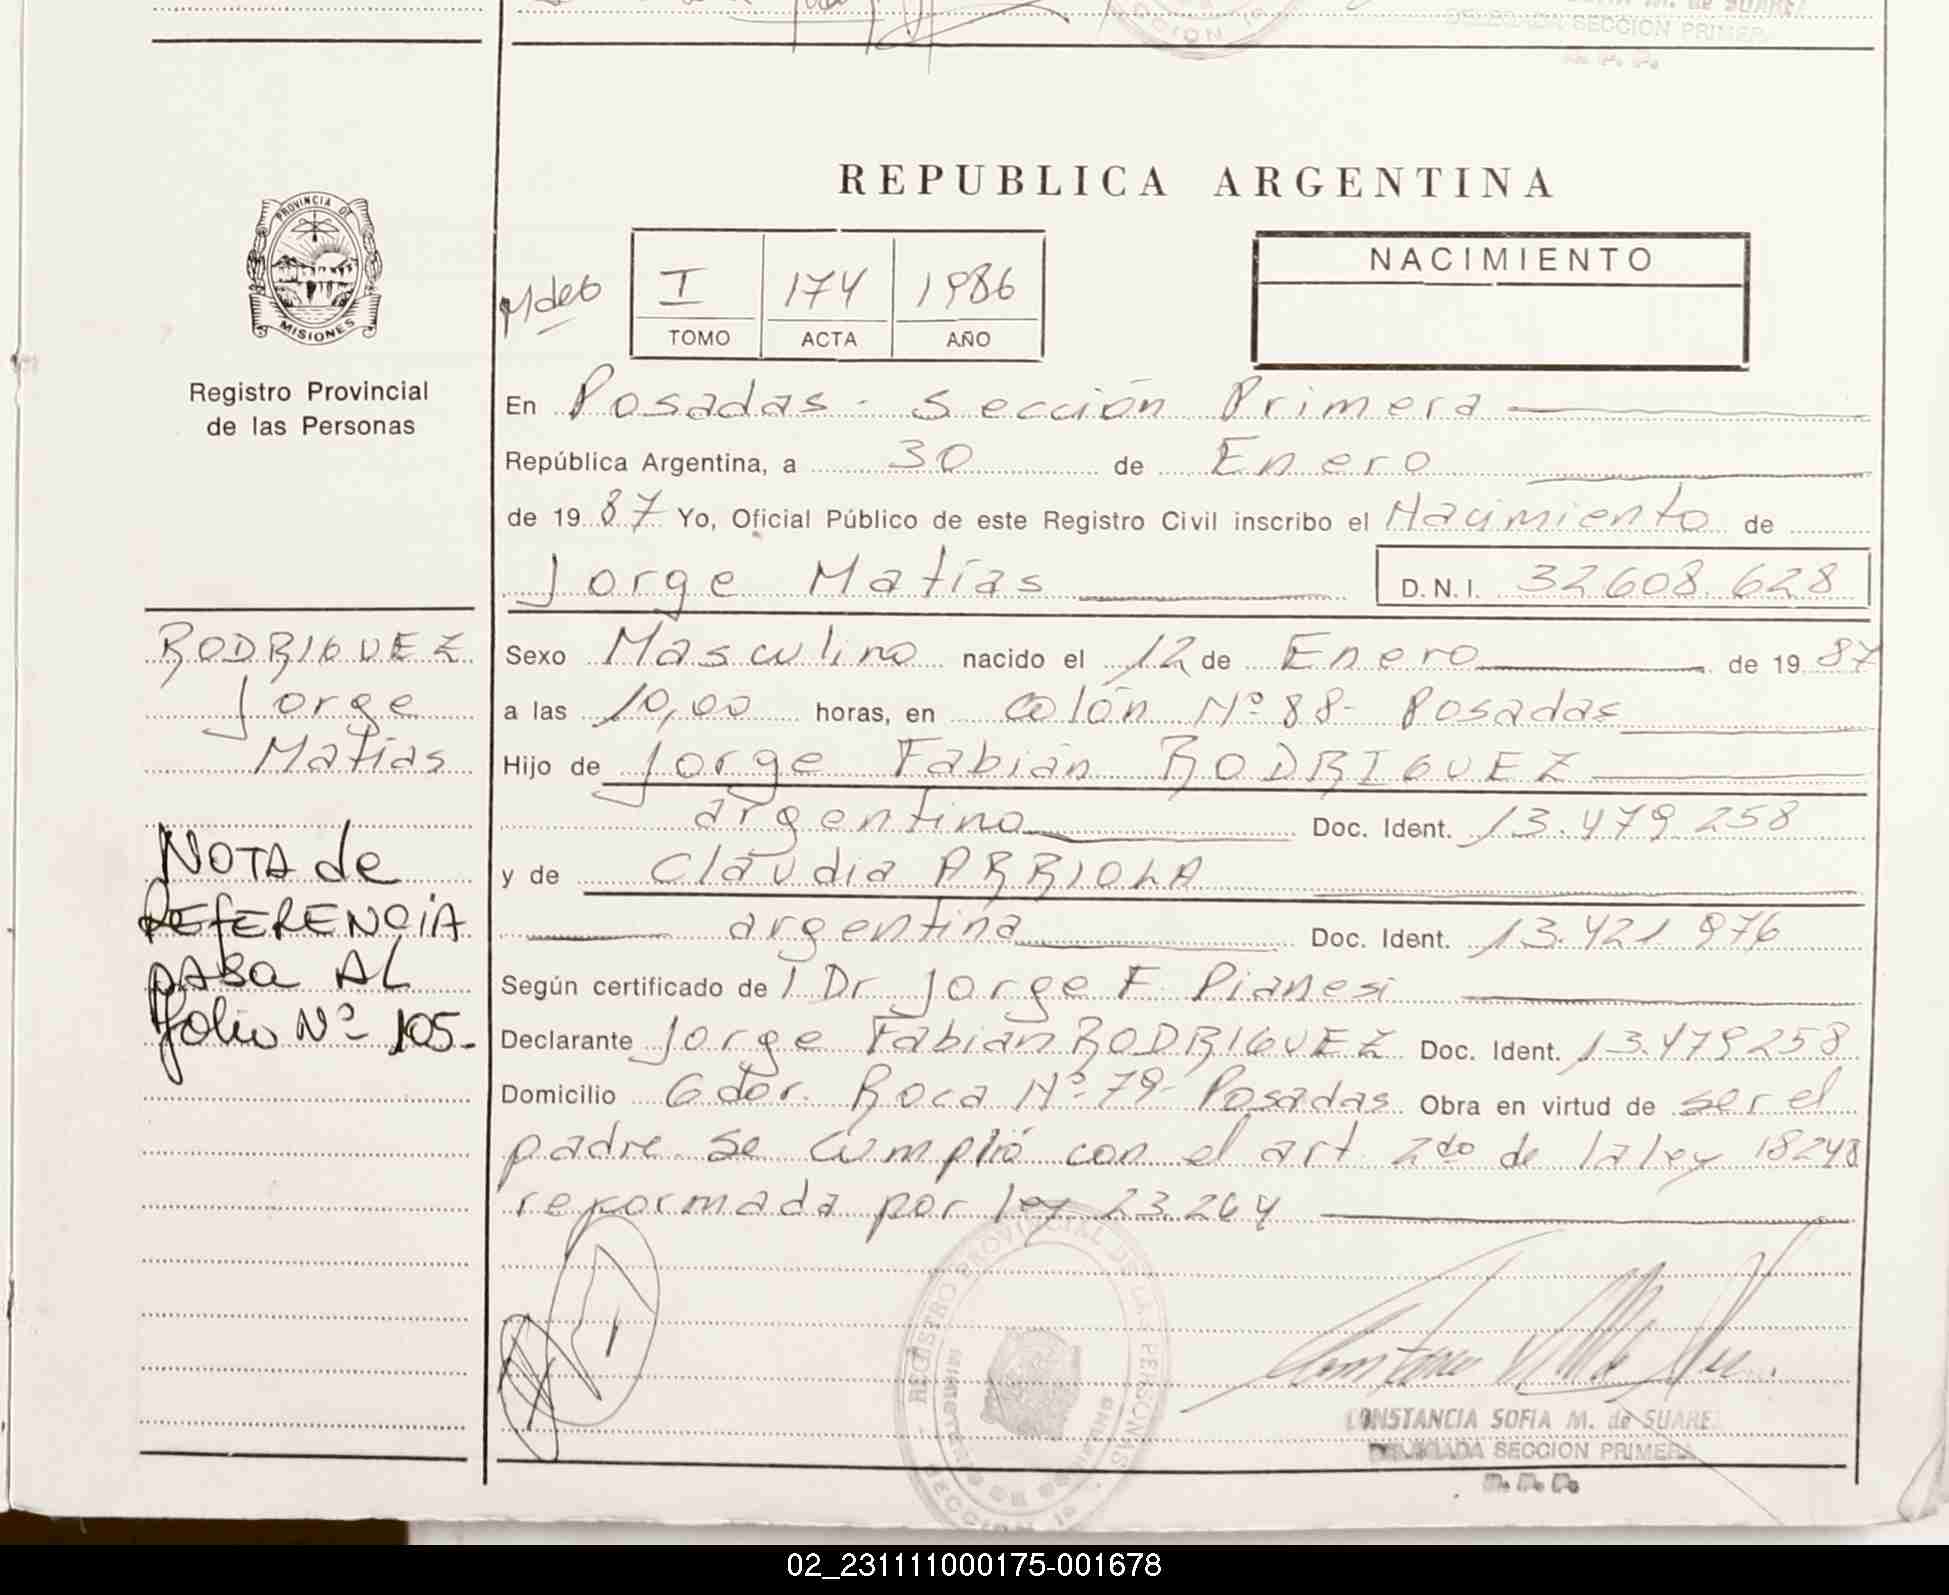 M. de SUAREZ
DELEGADA SECCION PRIMERA
REPUBLICA ARGENTINA
PROVINCIA DE
MISIONES
Registro Provincial
de las Personas
I 174 1986
TOMO ACTA AÑO
NACIMIENTO
En Posadas - Sección Primera
República Argentina, a 30 de Enero
de 1987 Yo, Oficial Público de este Registro Civil inscribo el Nacimiento de
Jorge Matías D.N.I. 32.608.628
RODRIGUEZ
Jorge
Matías
Sexo Masculino nacido el 12 de Enero de 1987
a las 10,00 horas, en Colón Nº 88- Posadas
Hijo de Jorge Fabián RODRIGUEZ
argentino Doc. Ident. 13.479.258
y de Claudia ARRIOLA
argentina Doc. Ident. 13.421.976
Según certificado del Dr Jorge F. Pianesi
Declarante Jorge Fabián RODRIGUEZ Doc. Ident. 13.479258
Domicilio Gdor. Roca Nº 79- Posadas Obra en virtud de ser el
padre se cumplió con el art. 2do de la ley 18248
reformada por ley 23.264
NOTA de
REFERENCIA
PASA AL
folio Nº 105.-
REGISTRO PROVINCIAL DE LAS PERSONAS
CONSTANCIA SOFIA M. de SUAREZ
DELEGADA SECCION PRIMERA
02_231111000175-001678